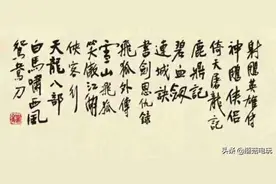 射鵰英雄传
神鵰侠侣
倚天屠龍記
鹿鼎記
碧血劍
連城訣
書劍恩仇錄
飛狐外傳
雪山飛狐
笑傲江湖
俠客行
天龍八部
白馬嘯西風
鴛鴦刀